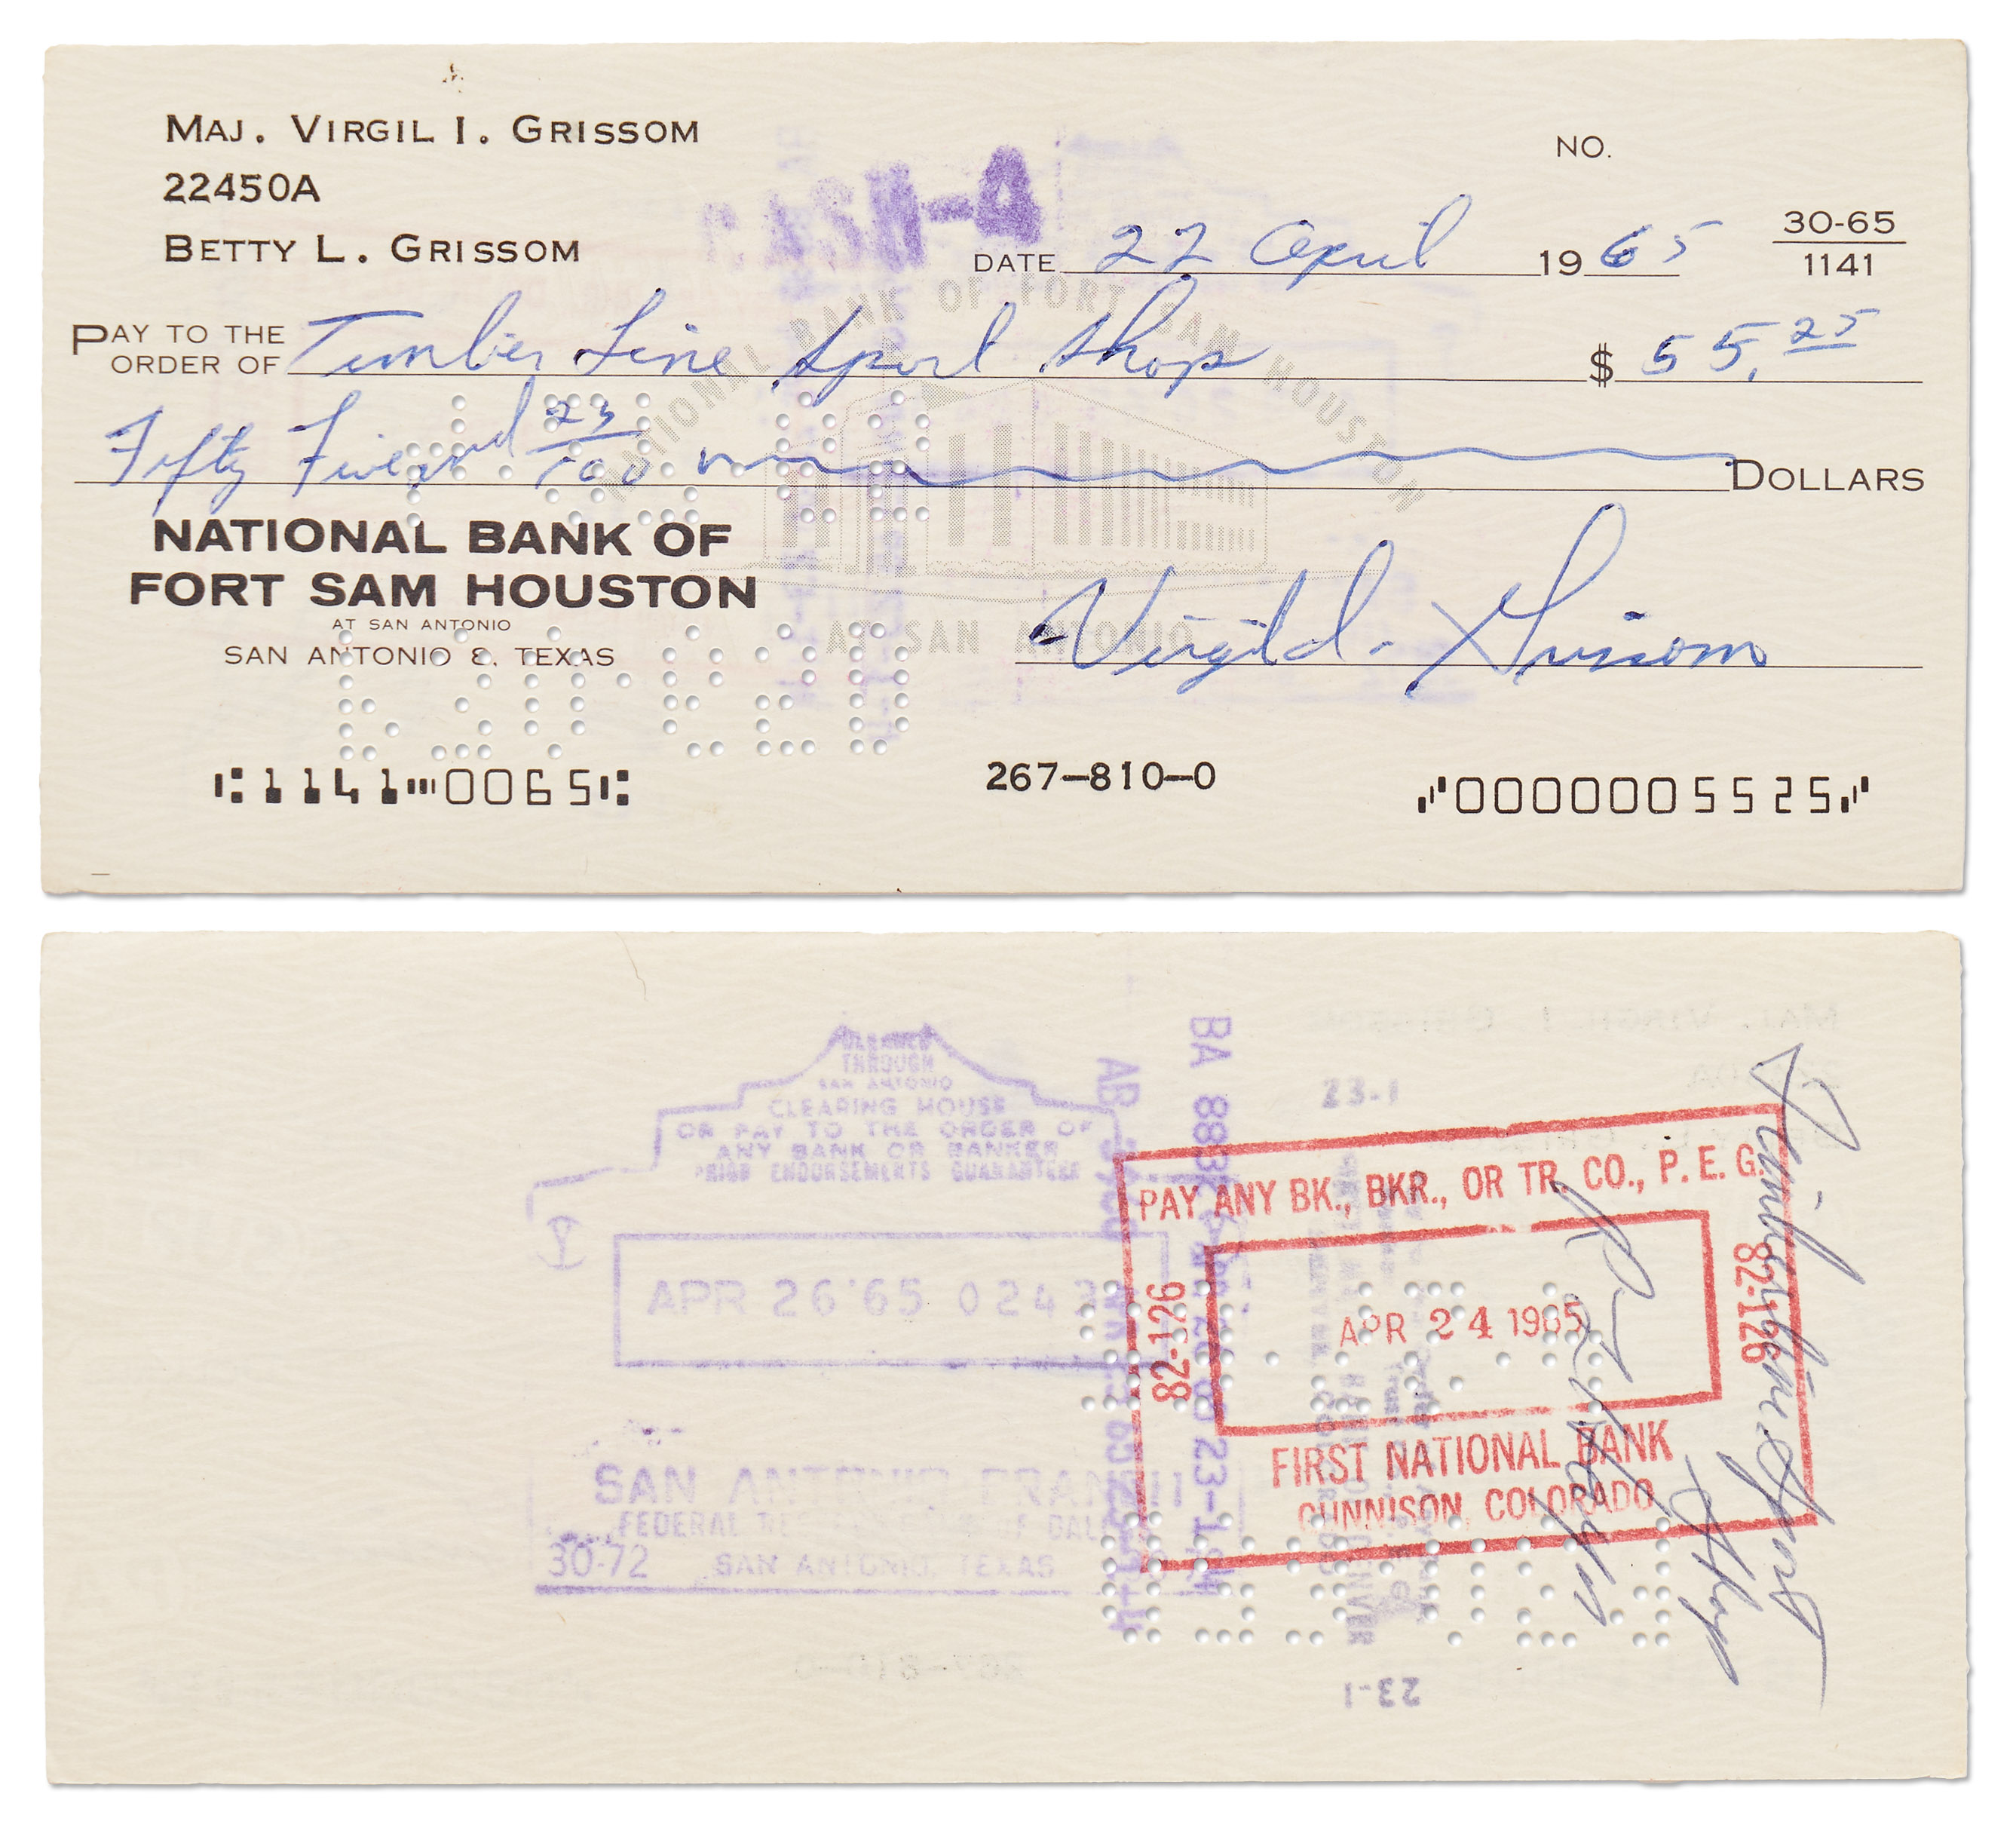 MAJ. VIRGIL I. GRISSOM
22450A
BETTY L. GRISSOM
NO.
CASH-A
DATE 22 April 1965
30-65
1141
PAY TO THE ORDER OF Timber Line Sport Shop $ 55.25
Fifty Five and 25/100 DOLLARS
NATIONAL BANK OF FORT SAM HOUSTON
AT SAN ANTONIO
NATIONAL BANK OF
FORT SAM HOUSTON
AT SAN ANTONIO
SAN ANTONIO 8, TEXAS
Virgil I. Grissom
1141 0065
267-810-0
0000005525
THROUGH
SAN ANTONIO
CLEARING HOUSE
OR PAY TO THE ORDER OF
ANY BANK OR BANKER
PRIOR ENDORSEMENTS GUARANTEED
APR 26'65 024
SAN ANTONIO BRANCH
FEDERAL RESERVE BANK OF DALLAS
30-72 SAN ANTONIO, TEXAS
23-1
PAY ANY BK., BKR., OR TR. CO., P. E. G.
82-126
APR 24 1965
82-126
FIRST NATIONAL BANK
GUNNISON, COLORADO
Timberline Sport
Shop
23-1